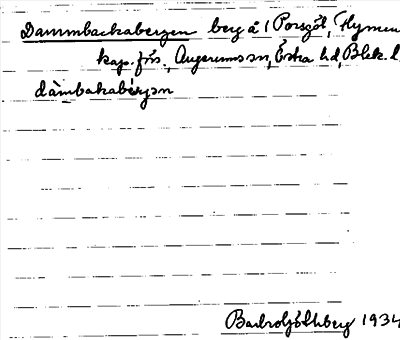 Dammbackabergen berg å 1 Porsgöl, Flymen
kap. frs., Augerums sn, Östra hd, Blek. l
dàmbakabérjən
1934